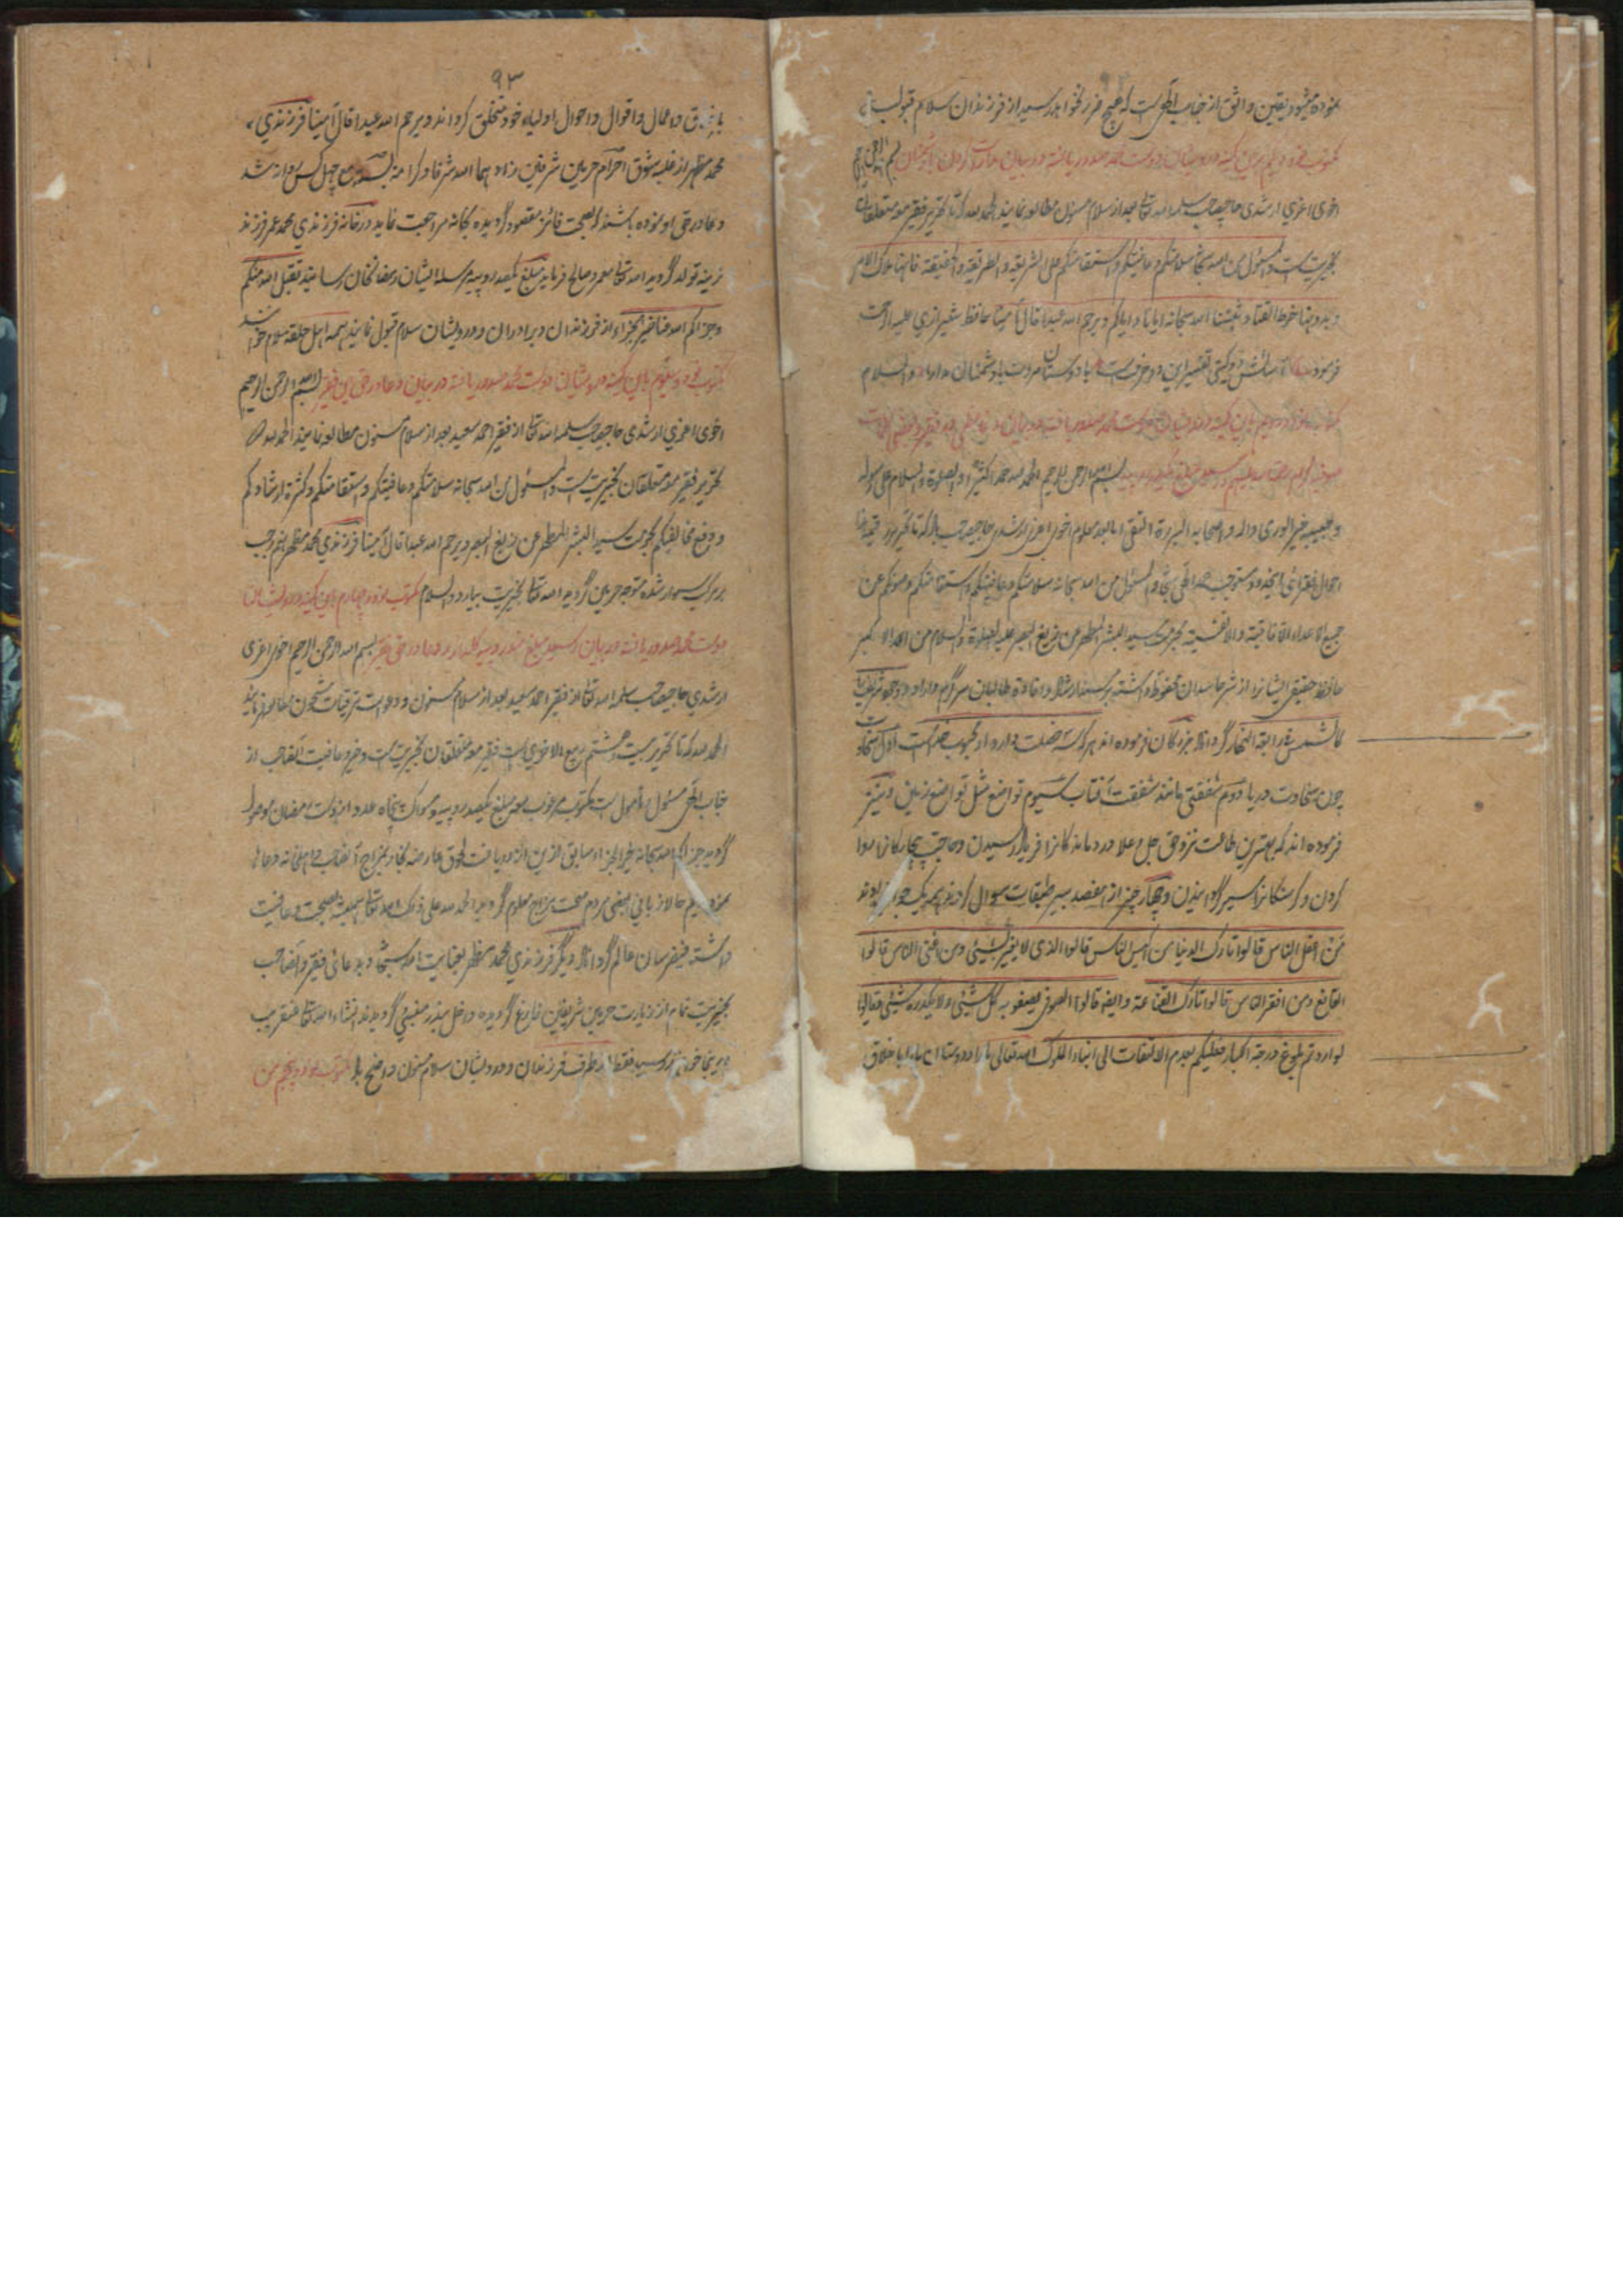 نموده میشود یقین واثق از جناب الهی است که هیچ ضرر نخواهد رسید از فرزندان سلام قبول باد
مکتوب نود و یکم باین کمینه درویشان دوست محمد صدور یافته در بیان مدارات کردن با دشمنان بسم الله الرحمن الرحیم
اخوی اعزی ارشدی حاجی صاحب سلمه الله تعالی بعد از سلام مسنون مطالعه نمایند الحمد لله که تا تحریر فقیر مع متعلقان
بخیریت است والمسئول من الله سبحانه سلامتکم وعافیتکم واستقامتکم علی الشریعة والطریقة والحقیقة فانها ملاک الامر
وبدونها خرط القتاد ثبتنا الله سبحانه ایانا وایاکم ویرحم الله عبدا قال آمینا حافظ شیرازی علیه الرحمة
فرموده آسائش دو گیتی تفسیر این دو حرف است با دوستان مروت با دشمنان مدارا والسلام
مکتوب نود و دویم باین کمینه درویشان دوست محمد صدور یافته در بیان
بسم الله الرحمن الرحیم الحمد لله حمدا کثیرا والصلوة والسلام علی رسوله
وحبیبه خیر الوری واله واصحابه البررة التقی اما بعد معلوم اخوی اعزی ارشدی حاجی صاحب باد که تا تحریر رقیمه هذا
احوال فقرای اینحدود مستوجب حمد الهی است والمسئول من الله سبحانه سلامتکم وعافیتکم واستقامتکم وصونکم عن
جمیع الاعداء الآفاقیة والانفسیة بحرمت سید البشر المطهر من زیغ البصر علیه الصلوة والسلام من الله الاکبر
حافظ حقیقی ایشانرا از شر حاسدان محفوظ داشته بر مسند ارشاد وافاده طالبان سرگرم داراد و وجود شریف را
کالشمس فی رابعة النهار گرداناد بزرگان فرموده اند هر که سه خصلت دارد او محبوب خداست اول سخاوت
چون سخاوت دریا دوم شفقتی مانند شفقت آفتاب سیوم تواضع مثل تواضع زمین ونیز
فرموده اند که بهترین طاعت نزد حق جل وعلا درماندگانرا فریاد رسیدن وحاجت بیچارگانرا روا
کردن وگرسنگانرا سیر گردانیدن وچهار چیز از هفصد پیر طبقات سوال کردند همه یک جواب دادند
من اعقل الناس قالوا تارک الدنیا من اکیس الناس قالوا الذی لا یغیر بشیئی ومن اغنی الناس قالوا
القانع ومن افقر الناس قالوا تارک القناعة وایضا قالوا الصوفی یصفو به کل شیئی ولا یکدره شیئی فقالوا
لو اردتم بلوغ درجة الکبار فعلیکم بعدم الالتفات الی ابناء الملوک الله تعالی ما را ودوستان ما را باخلاق
۹۳
واعمال واقوال واحوال اولیاء خود متخلق گرداند ویرحم الله عبدا قال آمینا فرزندی
محمد مظهر از غلبه شوق احرام حرمین شریفین زادهما الله شرفا وکرامة بسته مع چهل کس روانه شد
دعا در حق او نموده باشند بصحت فائز مقصود گردیده بخانه مراجعت نماید در خانه فرزندی محمد عمر فرزند
نرینه تولد گردید الله تعالی معمر وصالح فرماید مبلغ یکصد روپیه مرسله ایشان رمضانخان رسانید تقبل الله منکم
وجزاکم الله عنا خیر الجزاء از فرزندان وبرادران ودرویشان سلام قبول نمایند همه اهل حلقه سلام خوانند
مکتوب نود وسیوم باین کمینه درویشان دوست محمد صدور یافته در بیان دعا در حق این فقیر بسم الله الرحمن الرحیم
اخوی اعزی ارشدی حاجی صاحب سلمه الله تعالی از فقیر احمد سعید بعد از سلام مسنون مطالعه نمایند الحمد لله که تا
تحریر فقیر مع متعلقان بخیریت است والمسئول من الله سبحانه سلامتکم وعافیتکم واستقامتکم وکثرة ارشادکم
ودفع مخالفیکم بحرمت سید البشر المطهر عن زیغ البصر ویرحم الله عبدا قال آمینا فرزندی محمد مظهر بنهم رجب
بر مرکب سوار شده متوجه حرمین گردید الله تعالی بخیریت بیارد والسلام مکتوب نود وچهارم باین کمینه درویشان
دوست محمد صدور یافته در بیان رسید مبلغ صد روپیه ودعا در حق فقیر بسم الله الرحمن الرحیم اخوی اعزی
ارشدی حاجی صاحب سلمه الله تعالی از فقیر احمد سعید بعد از سلام مسنون ودعوات ترقیات مشحون مطالعه نمایند
الحمد لله که تا تحریر بیست وهشتم ربیع الاخری است فقیر مع متعلقان بخیریت است وخیر وعافیت آنصاحب از
جناب الهی مسئول ومامول است مکتوب مرغوب مع مبلغ یکصد روپیه ومسواک پنجاه عدد از دست رمضان موصول
گردید جزاکم الله سبحانه خیر الجزاء سابق ازین از دریافت لحوق عارضه بخار بمزاج آنصاحب غائبانه دعا
نمودیم حالا زبانی بعضی مردم صحت مزاج معلوم گردید الحمد لله علی ذلک الله تعالی همیشه بصحت وعافیت
داشته فیضرسان عالم گرداناد دیگر فرزندی محمد مظهر بعنایت الله سبحانه وبدعائی فقیر وآنصاحب
بخیریت تمام از زیارت حرمین شریفین فارغ گردیده داخل بندر ممبئی گردیدند انشاء الله تعالی عنقریب
درینجا خواهند رسید فقط از طرف فرزندان ودرویشان سلام مسنون واضح باد مکتوب نود وپنجم من